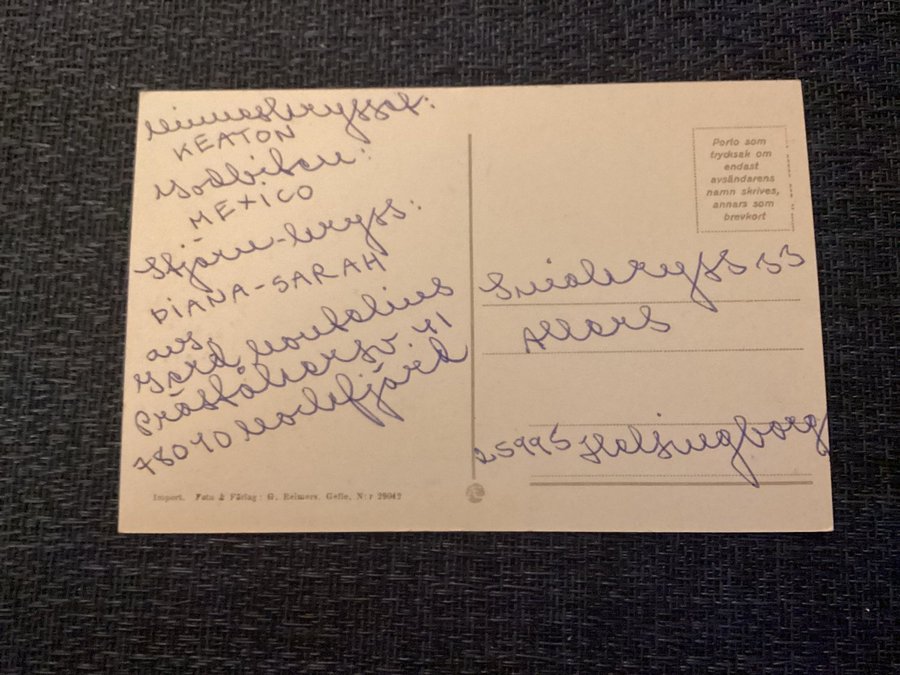 Minneskrysset:
KEATON
Godbiten:
MEXICO
Stjärn-kryss:
DIANA-SARAH
avs
Gerd Montelius
Präståkersv. 41
78040 Mockfjärd
Import. Foto & Förlag: G. Reimers, Gefle, N:r 29042
Porto som
trycksak om
endast
avsändarens
namn skrives,
annars som
brevkort
Småkryss 53
Allers
25995 Helsingborg